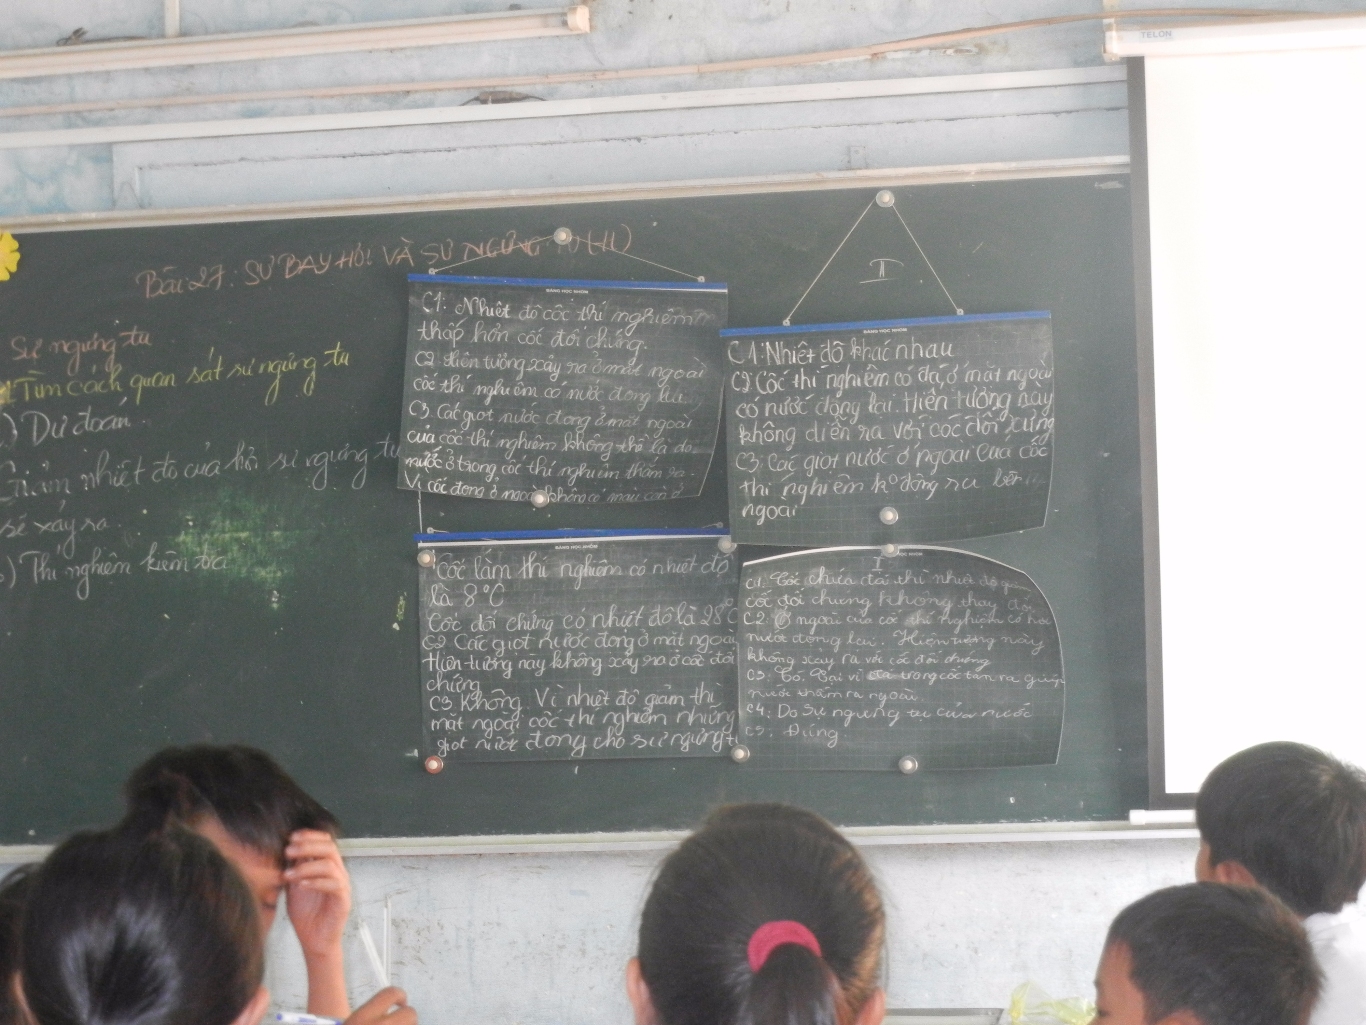 TELON
Bài 27: SỰ BAY HƠI VÀ SỰ NGƯNG TỤ (tt)
Sự ngưng tụ
Tìm cách quan sát sự ngưng tụ
a) Dự đoán
Giảm nhiệt độ của hơi sự ngưng tụ
sẽ xảy ra.
b) Thí nghiệm kiểm tra
BẢNG HỌC NHÓM
C1: Nhiệt độ cốc thí nghiệm
thấp hơn cốc đối chứng.
C2 Hiện tượng xảy ra ở mặt ngoài
cốc thí nghiệm có nước đọng lại.
C3 Các giọt nước đọng ở mặt ngoài
của cốc thí nghiệm không thể là do
nước ở trong cốc thí nghiệm thấm ra.
Vì cốc đọng ở ngoài không có màu còn ở
II
BẢNG HỌC NHÓM
C1: Nhiệt độ khác nhau
C2: Cốc thí nghiệm có đá, ở mặt ngoài
có nước đọng lại. Hiện tượng này
không diễn ra với cốc đối xứng
C3: Các giọt nước ở ngoài của cốc
thí nghiệm ko đọng ra bên
ngoài
BẢNG HỌC NHÓM
Cốc làm thí nghiệm có nhiệt độ
là 8°C
Cốc đối chứng có nhiệt độ là 28°C
C2 Các giọt nước đọng ở mặt ngoài
Hiện tượng này không xảy ra ở cốc đối
chứng
C3 Không. Vì nhiệt độ giảm thì
mặt ngoài cốc thí nghiệm những
giọt nước đọng cho sự ngưng
HỌC NHÓM
I
C1. Cốc chứa đá thì nhiệt độ
cốc đối chứng không thay
C2. Ở ngoài của cốc thí nghiệm có
nước đọng lại. Hiện tượng này
không xảy ra với cốc đối
C3. Có. Tại vì đá trong cốc tan ra giúp
nước thấm ra ngoài
C4. Do sự ngưng tụ của nước
C5. Đúng